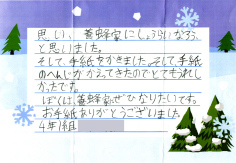 思い、養蜂家にしょうらいなろう
と思いました。
そして、手紙をかきました。そして、手紙
のへんじがかえってきたのでとてもうれし
かったです。
ぼくは、養蜂家ぜひなりたいです。
お手紙ありがとうございました
4年1組